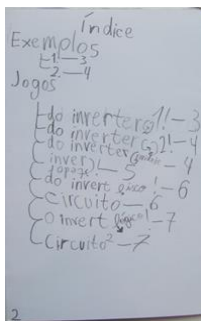 Índice
Exemplos
1!—3
2—4
Jogos
do inverter 1!—3
do inverter 2!—4
do inverter —4
inver)!—5
do invert !—6
Circuito—6
O invert lógico!—7
Circuito²—7
2